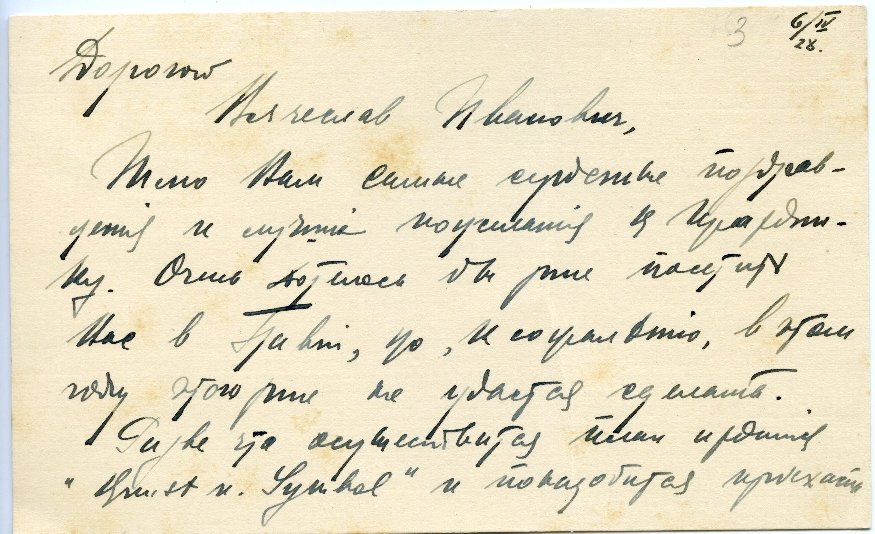 3 6/IV 28.
Дорогой
Вячеслав Иванович,
Шлю Вам самые сердечные поздрав-
ления и лучшія пожеланія къ Праздни-
ку. Очень хотелось бы мне посетить
Вас в Павіи, но, к сожаленію, в этом
году этого мне не удастся сделать.
Разве что осуществится план изданія
"Kunst u. Symbol" и понадобится приехать